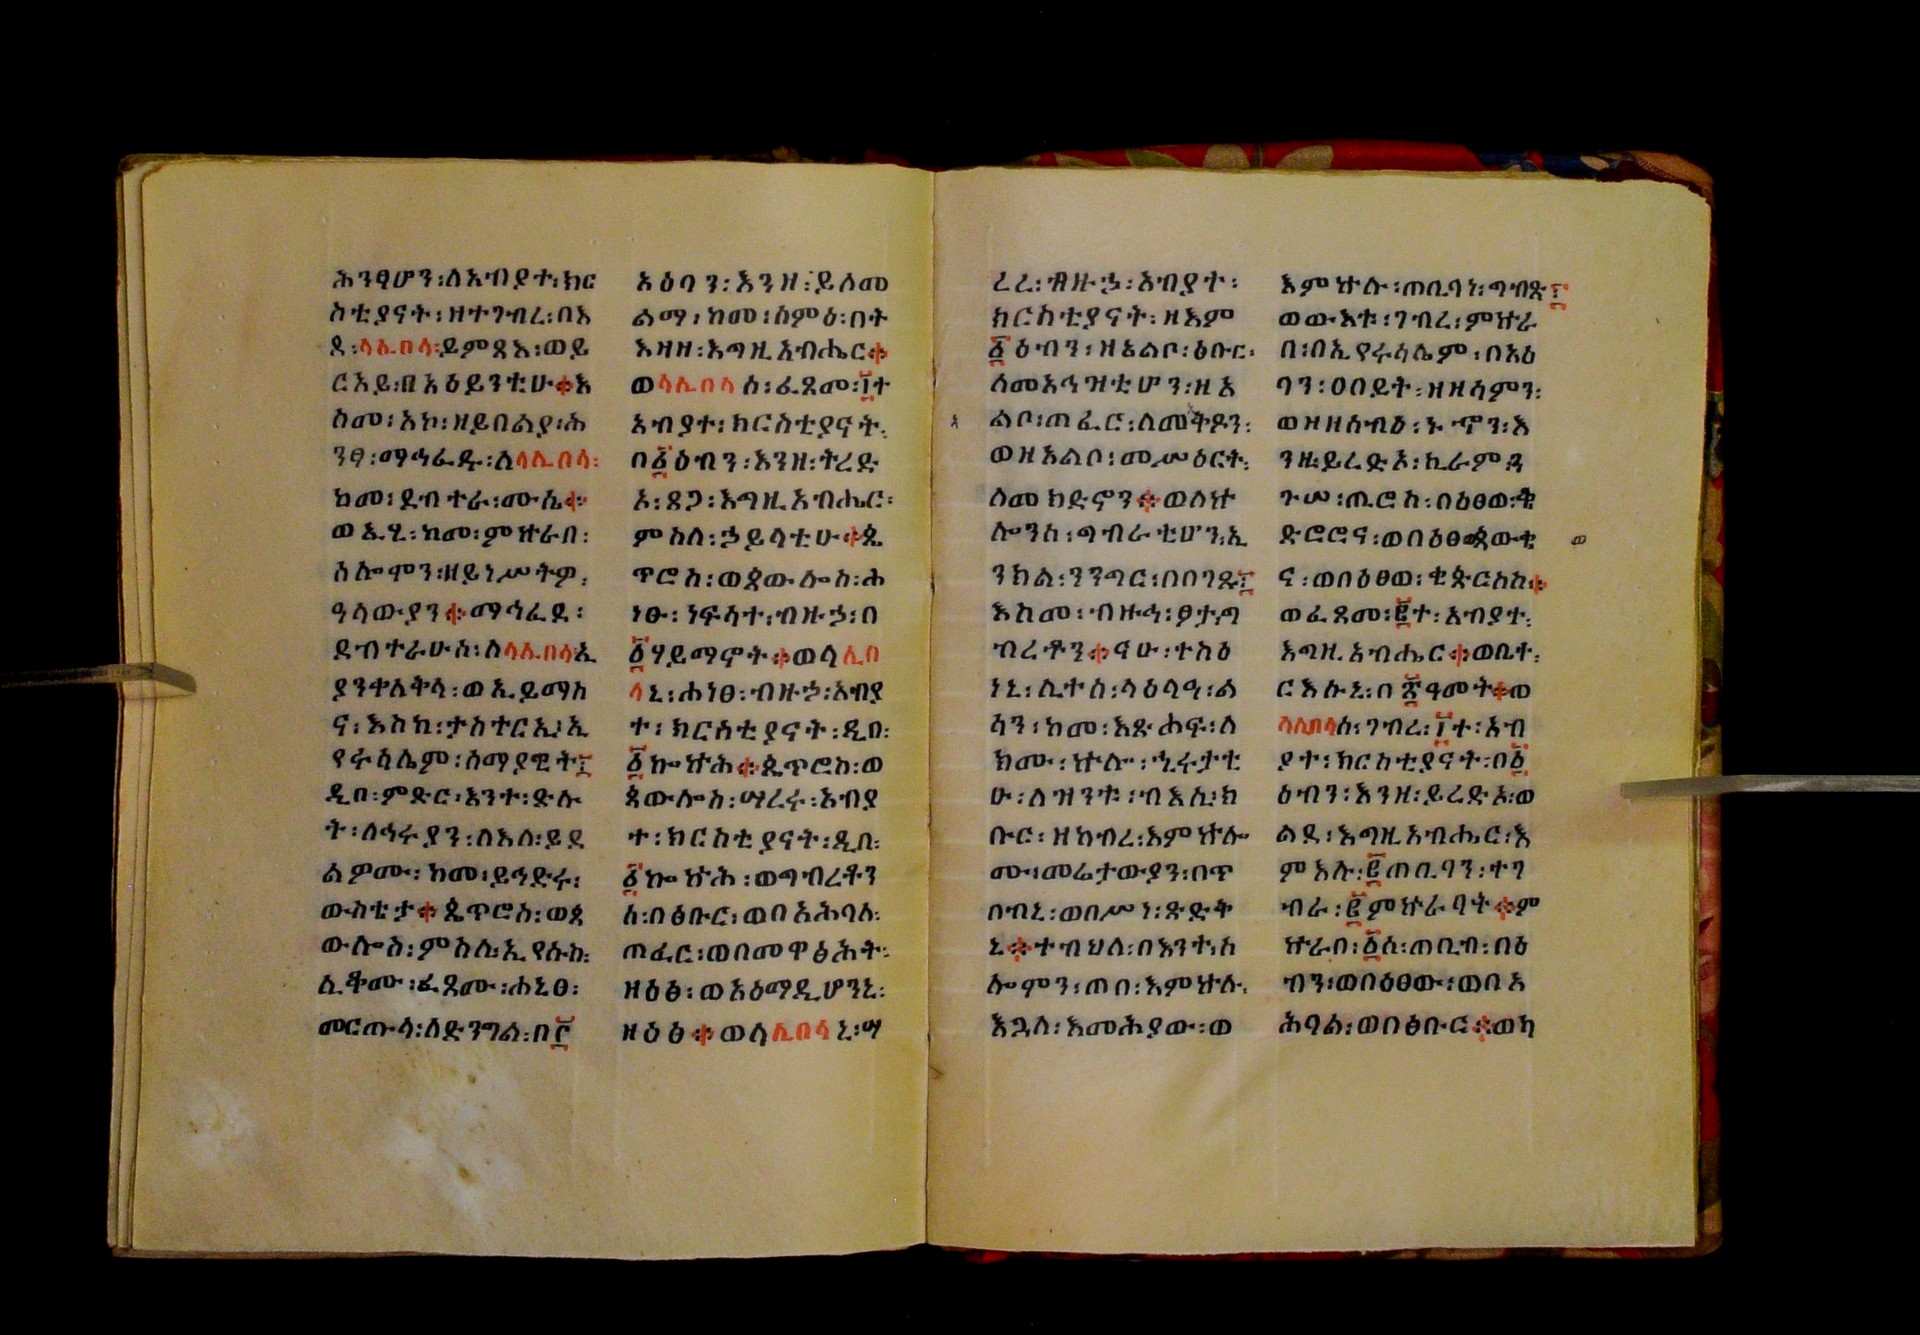 ሕንፃሆን፡ለአብያተ፡ክር
ስቲያናት፡ዘተገብረ፡በእ
ደ፡ላሊበላ፡ይምጻእ፡ወይ
ርአይ፡በአዕይንቲሁ፨እ
ስመ፡አኮ፡ዘይበልያ፡ሕ
ንፃ፡ማኅፈዱ፡ለላሊበላ፡
ከመ፡ደብተራ፡ሙሴ፨
ወኢሂ፡ከመ፡ምኵራበ፡
ሰሎሞን፡ዘይነሥትዎ፡
ዓላውያን፨ማኅፈደ፡
ደብተራሁሰ፡ለላሊበላ፡ኢ
ያንቀለቅላ፡ወኢይማስ
ና፡እስከ፡ታስተርኢ፡ኢ
የሩሳሌም፡ሰማያዊት፤
ዲበ፡ምድር፡እንተ፡ድሉ
ት፡ለኅሩያን፡ለእለ፡ይደ
ልዎሙ፡ከመ፡ይኅድሩ፡
ውስቲታ፨ጴጥሮስ፡ወጳ
ውሎስ፡ምስለ፡ኢየሱስ፡
ሊቆሙ፡ፈጸሙ፡ሐኒፀ፡
መርጡላ፡ለድንግል፡በ፫
አዕባን፡እንዘ፡ይሰመ
ልማ፡ከመ፡ስምዕ፡በት
እዛዘ፡እግዚአብሔር፨
ወላሊበላሰ፡ፈጸመ፡፲ተ
አብያተ፡ክርስቲያናት፡
በ፩ዕብን፡እንዘ፡ትረድ
ኦ፡ጸጋ፡እግዚአብሔር፡
ምስለ፡ኃይላቲሁ፨ጴ
ጥሮስ፡ወጳውሎስ፡ሐ
ነፁ፡ነፍሳተ፡ብዙኃ፡በ
፩ሃይማኖት፨ወላሊበ
ላኒ፡ሐነፀ፡ብዙኃ፡አብያ
ተ፡ክርስቲያናት፡ዲበ፡
፩ኰኵሕ፨ጴጥሮስ፡ወ
ጳውሎስ፡ሣረሩ፡አብያ
ተ፡ክርስቲያናት፡ዲበ፡
፩ኰኵሕ፡ወግብረቶን
ሰ፡በፅቡር፡ወበአሕባለ፡
ጠፈር፡ወበመዋፅሕት፡
ዘዕፅ፡ወአዕማዲሆንኒ፡
ዘዕፅ፨ወላሊበላኒ፡ሣ
ረረ፡ብዙኃ፡አብያተ፡
ክርስቲያናት፡ዘእም
፩ዕብን፡ዘኢልቦ፡ፅቡር፡
ለመአኅዝቲሆን፡ዘአ
ልቦ፡ጠፈር፡ለመቅዶን፡
ወዘአልቦ፡መሥዕርት፡
ለመክድኖን፨ወለኵ
ሎንሰ፡ግብራቲሆን፡ኢ
ንክል፡ንንግር፡በበገጹ፤
እስመ፡ብዙኅ፡ፆታ፡ግ
ብረቶን፨ናሁ፡ተስዕ
ነኒ፡ሊተሰ፡ላዕላዓ፡ል
ሳን፡ከመ፡እጽሐፍ፡ለ
ክሙ፡ኵሎ፡ኂሩታቲ
ሁ፡ለዝንቱ፡ብእሲ፡ክ
ቡር፡ዘከብረ፡እምኵሎ
ሙ፡መሬታውያን፡በጥ
በብኒ፡ወበሥነ፡ጽድቅ
ኒ፨ተብህለ፡በእንተ፡ሰ
ሎሞን፡ጠበ፡እምኵሉ፡
እጓለ፡እመሕያው፡ወ
እምኵሉ፡ጠቢባነ፡ግብጽ፤
ወውእቱ፡ገብረ፡ምኵራ
በ፡በኢየሩሳሌም፡በአዕ
ባን፡ዐበይት፡ዘዘሳምን፡
ወዘዘሰብዕ፡ኑኖን፡እ
ንዘ፡ይረድኦ፡ኪራም፡ን
ጉሠ፡ጢሮስ፡በዕፀወ፡ቄ
ድሮሮና፡ወበዕፀጴውቂ
ና፡ወበዕፀወ፡ቂጵርስስ፨
ወፈጸመ፡፪ተ፡አብያተ፡
እግዚአብሔር፨ወቤተ፡
ርእሱኒ፡በ፳ዓመት፨ወ
ላሊበላሰ፡ገብረ፡፲ተ፡አብ
ያተ፡ክርስቲያናት፡በ፩
ዕብን፡እንዘ፡ይረድኦ፡ወ
ልደ፡እግዚአብሔር፡እ
ምእሉ፡፪ጠቢባን፡ተገ
ብራ፡፪ምኵራባት፨ም
ኵራበ፡፩ሰ፡ጠቢብ፡በዕ
ብን፡ወበዕፀው፡ወበአ
ሕባል፡ወበፅቡር፨ወካ
ወ